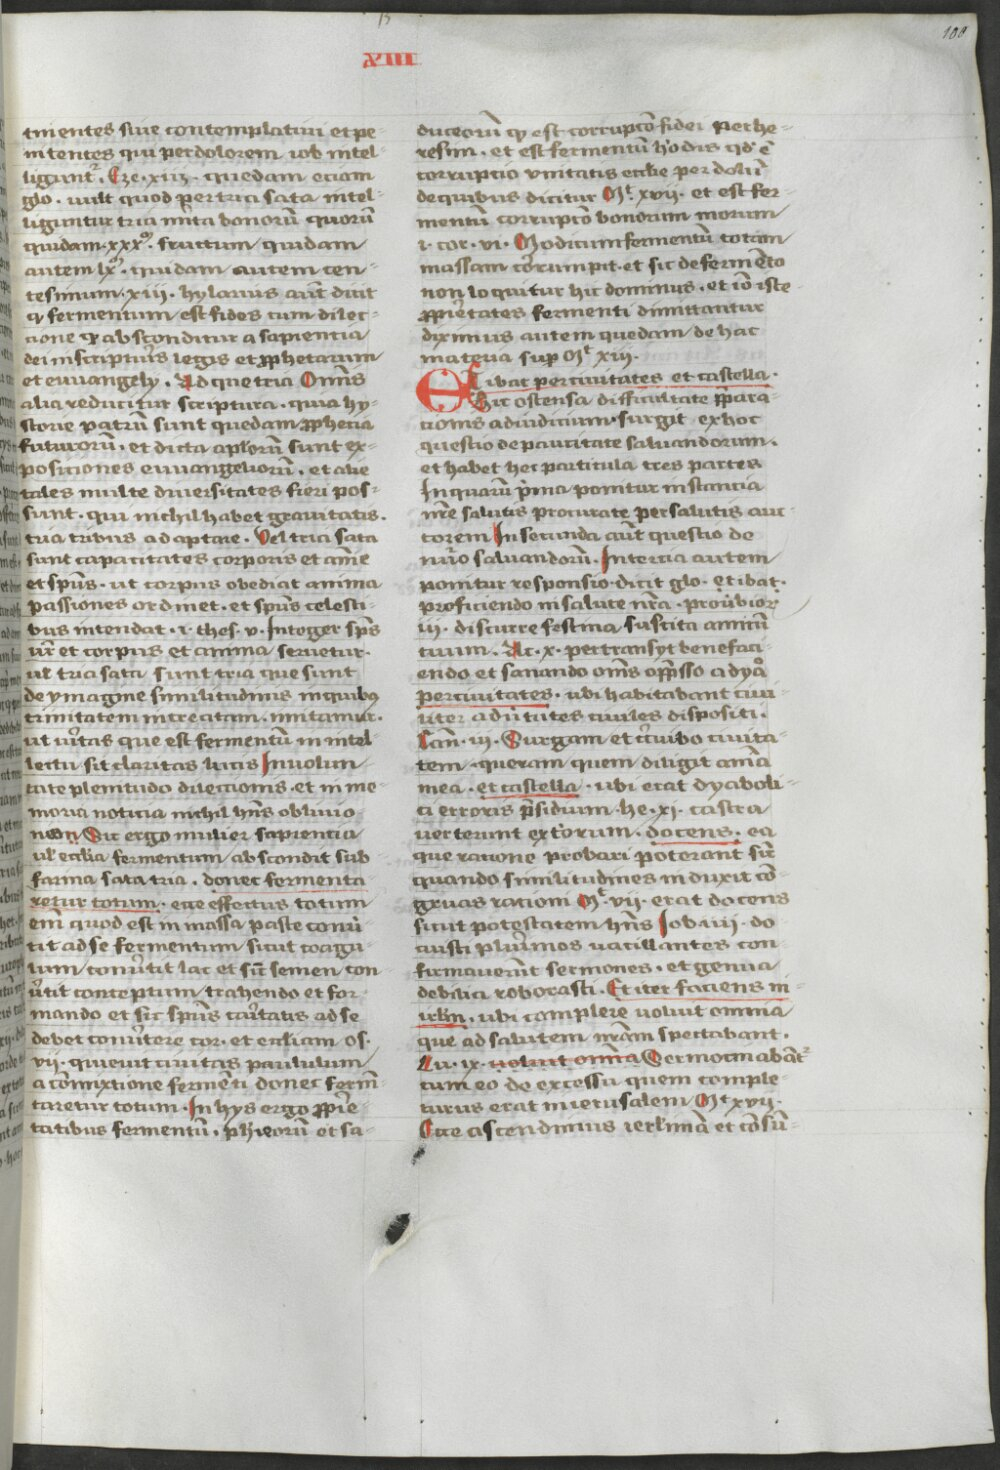 13
108
XIII
tinentes siue contemplatiui et pe-
nitentes qui per dolorem iob intel-
ligunt᷑. Eze. xiiij. quedam eciam
glo. uult quod per tria sata intel-
liguntur tria mi̅ta bonoru̅ quoru̅
quidam. xxxꝰ. fructum quidam
autem lxꝰ. quidam autem cen-
tesimum. xiii. hylarius aūt dicit
ꝙ fermentum est fides cum dilec-
cione que absconditur a sapiencia
dei in scripturis legis et ꝓphetarum
et euuangelÿ. Ad que tria Om̅is
alia reducitur scriptura. quia hy-
storie patru̅ sunt quedam ꝓphecia
futuroru̅. et dicta ap̅loru̅ sunt ex-
posiciones euuangelioru̅. et alie
tales multe diuersitates fieri pos-
sunt. qui nichil habet grauitatis.
tria tribus adaptare. Vel tria sata
sunt capacitates corporis et anīe
et sp̅us. ut corpus obediat anima
passiones ordinet. et sp̅us celesti-
bus intendat. i. thes. v. Integer sp̅us
ur̅ et corpus et anima seruetur.
ul̕ tria sata sunt tria que sunt
de ymagine similitudinis in quibꝰ
trinitatem increatam. imitamur.
ut u̕itas que est fermentu̅ in intel
lectu sit claritas lucis In uolun
tate plenitudo dilectionis. et in me-
moria noticia nichil hn̅s obliuio-
nis Sic ergo mulier sapiencia
ul̕ ecclia fermentum abscondit sub
farina sata tria. donec fermenta
retur totum. ecce effectus totum
eni̅ quod est in massa paste conu̕
tit ad se fermentum sicut coagu-
lum conu̕tit lac et sic̅ semen con-
u̕tit conceptum trahendo et for-
mando et sic sp̅us caritatis ad se
debet conu̕tere cor. et eccliam os.
vii. quieuit ciuitas paululum
a co̅mixtione ferme̅ti donec ferm̅
taretur totum. In hys ergo ꝓprie-
tatibus fermentu̅. phīeorum et sa-
duceoru̅ ꝙ est corrupco̅ fidei per he-
resim. et est fermentu̅ h̕odis qd̕ e̅
corrupcio unitatis ecclie per dolu̅
de quibus dicitur Mt xvii. et est fer-
mentu̅ corrupco̅ bonorum morum
i. cor. vi. Modicum fermentu̅ totam
massam co̅rumpit. et sic de ferme̅to
non loquitur hic dominus. et io̅ iste
ꝓprietates fermenti dimittantur
diximus autem quedam de hac
materia sup̱ Mt xiii.
Et ibat per ciuitates et castella.
Hic ostensa difficultate ꝓpara
cionis ad iudicium. surgit ex hoc
questio de paucitate saluandorum.
et habet hec particula tres partes
In quaru̅ p̕ma ponitur instancia
nr̅e salutis procurate per salutis auc-
torem In secunda aūt questio de
nu̅o saluandoru̅. In tercia autem
ponitur responsio. dicit glo. et ibat.
proficiendo in salute nr̅a. prou̕bior
iii. discurre festina suscita amicu̅
tuum. Ac. x. pertransyt benefaci-
endo et sanando om̅s oꝓsso a dyaᵒ
per ciuitates. ubi habitabant ciui-
liter ad u̕tutes ciuiles dispositi.
Can̅. iii. Surgam et circuibo ciuita-
tem. queram quem diligit ani̅a
mea. et castella. ubi erat dyaboli-
ci erroris p̕sidium. he. xi. castra
uerterunt extorum. docens. ea
que ratione probari poterant sic̅
quando similitudines induxit co̅-
gruas rationi Mt vii. erat docens
sicut potestatem hn̅s Iob iiii. do-
cuisti plurimos uacillantes con-
firmauerunt sermones. et genua
debilia roborasti. Et iter faciens in
irl̅m. ubi complere uoluit omnia
que ad salutem nr̅am spectabant.
Lu. ix. uoluit omnia Sermocinaba̅t᷑
cum eo de excessu quem comple-
turus erat in ierusalem Mt xvii.
Ecce ascendimus ierl̅ima̅ et co̅su̅-